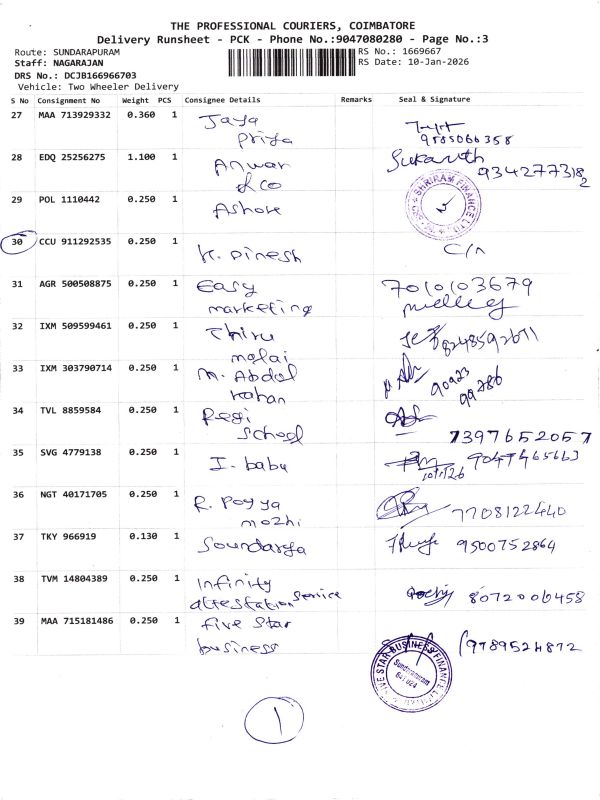 THE PROFESSIONAL COURIERS, COIMBATORE
Delivery Runsheet - PCK - Phone No.:9047080280 - Page No.:3
Route: SUNDARAPURAM RS No.: 1669667
Staff: NAGARAJAN RS Date: 10-Jan-2026
DRS No.: DCJB166966703
Vehicle: Two Wheeler Delivery
S No Consignment No Weight PCS Consignee Details Remarks Seal & Signature
27 MAA 713929332 0.360 1 Jaya
Priya
28 EDQ 25256275 1.100 1 Anwar Sukanth
& co 9342773182
29 POL 1110442 0.250 1 Ashok SHRIRAM FINANCE LTD
30 CCU 911292535 0.250 1 K. Dinesh C/n
31 AGR 500508875 0.250 1 Easy 7010103679
marketing
32 IXM 509599461 0.250 1 Thiru 8248592671
malai
33 IXM 303790714 0.250 1 M. Abdul 90923
rahan 99286
34 TVL 8859584 0.250 1 Regi
School 7397652057
35 SVG 4779138 0.250 1 I. babu 9047465663
10/1/26
36 NGT 40171705 0.250 1 R. Poyya
mozhi 7708122440
37 TKY 966919 0.130 1 Soundarya 9500752864
38 TVM 14804389 0.250 1 Infinity
attestation service 8072006458
39 MAA 715181486 0.250 1 five Star
business 9789524872
FIVE STAR BUSINESS FINANCE
Sundarapuram
641 024
1